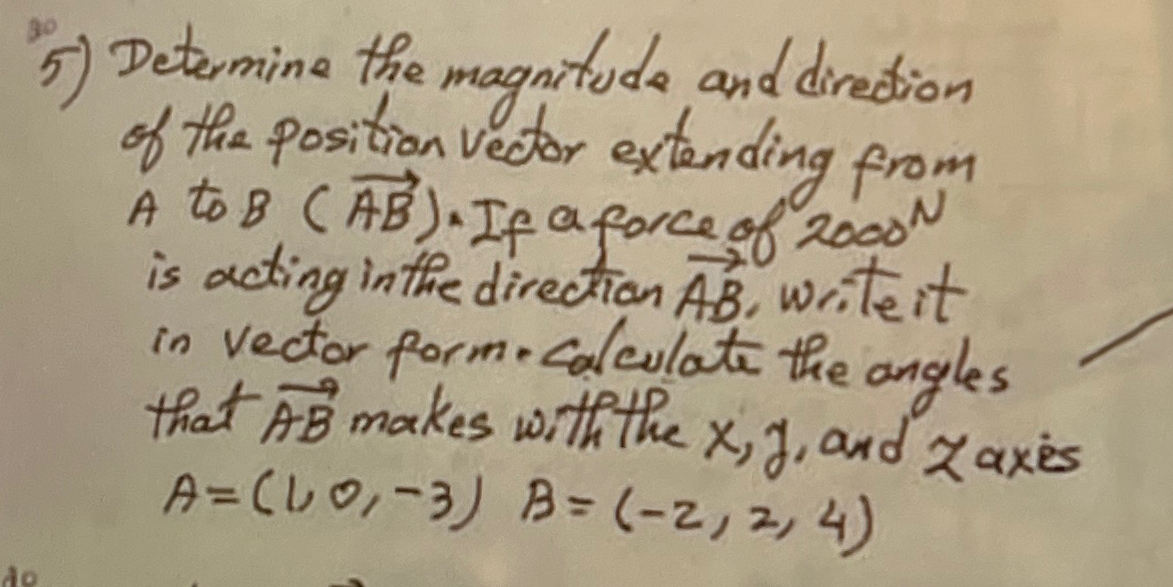 5) Determine the magnitude and direction
of the position vector extending from
A to B (AB). If a force of 2000N
is acting in the direction AB, write it
in vector form. Calculate the angles
that AB makes with the x, y, and z axes
A=(1, 0, -3) B=(-2, 2, 4)